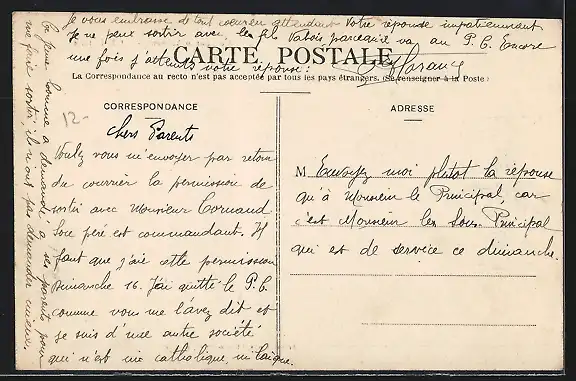 Je vous embrasse de tout coeur en attendant votre réponse impatiemment
Je ne peux sortir avec les fils Valois parce qu'il va au P. C. Encore
une fois j'attends votre réponse.
CARTE POSTALE
La Correspondance au recto n'est pas acceptée par tous les pays étrangers. (Se renseigner à la Poste)
CORRESPONDANCE
12-
Chers Parents
Voulez vous m'envoyer par retour
du courrier la permission de
sortir avec Monsieur
père est commandant. Il
faut que j'aie cette permission
Dimanche 16. J'ai quitté le P. C.
comme vous me l'avez dit et
je suis d'une autre société
qui n'est ni catholique, ni laïque.
ADRESSE
M. Envoyez moi plutot la réponse
qu'à Monsieur le Principal, car
c'est Monsieur le Sous-Principal
qui est de service ce dimanche.
homme a demandé à ses parents pour
me faire sortir, ils n'ont pas